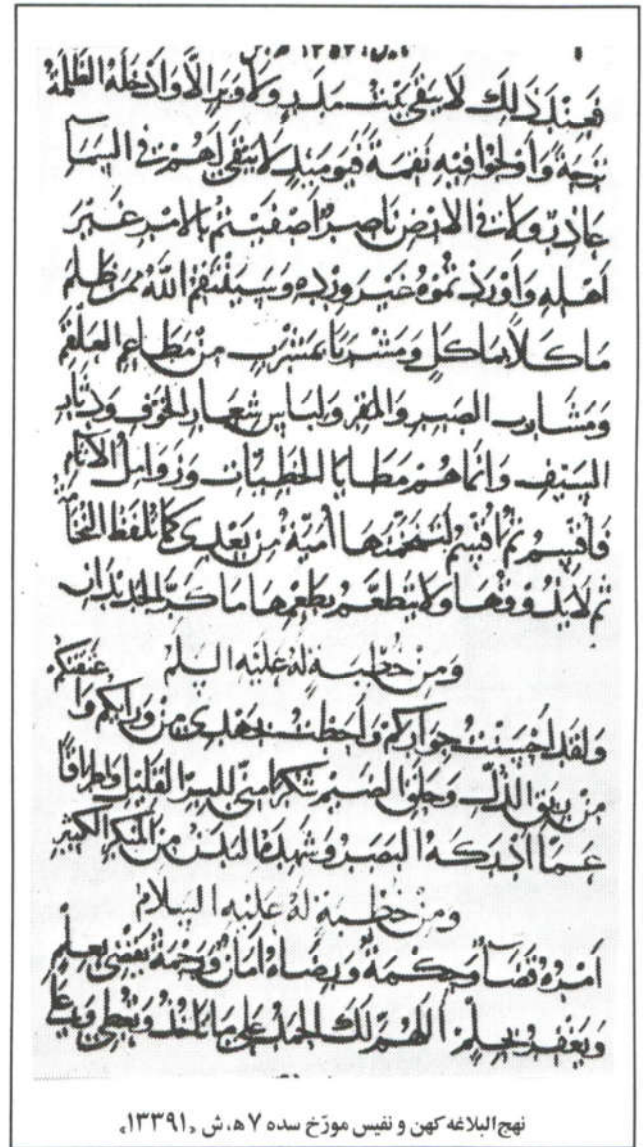 فَعِنْدَ ذَلِكَ لَا يَبْقَى بَيْتُ مَدَرٍ وَلَا وَبَرٍ إِلَّا وَأَدْخَلَهُ الظَّلَمَةُ
تَرْحَةً وَأَوْلَجُوا فِيهِ نِقْمَةً فَيَوْمَئِذٍ لَا يَبْقَى لَهُمْ فِي السَّمَآءِ
عَاذِرٌ وَلَا فِي الْأَرْضِ نَاصِرٌ أَصْفَيْتُمْ بِالْأَمْرِ غَيْرَ
أَهْلِهِ وَأَوْرَدْتُمُوهُ غَيْرَ وِرْدِهِ وَسَيَنْتَقِمُ اللهُ مِمَّنْ ظَلَمَ
مَأْكَلًا بِمَأْكَلٍ وَمَشْرَبًا بِمَشْرَبٍ مِنْ مَطَاعِمِ الْعَلْقَمِ
وَمَشَارِبِ الصَّبِرِ وَالْمَقِرِ وَلِبَاسِ شِعَارِ الْخَوْفِ وَدِثَارِ
السَّيْفِ وَإِنَّمَا هُمْ مَطَايَا الْخَطِيئَاتِ وَزَوَامِلُ الْآثَامِ
فَأُقْسِمُ ثُمَّ أُقْسِمُ لَتَنْخَمَنَّهَا أُمَيَّةُ مِنْ بَعْدِي كَمَا تُلْفَظُ النُّخَامَةُ
ثُمَّ لَا تَذُوقُهَا وَلَا تَتَطَعَّمُ بِطَعْمِهَا مَا كَرَّ الْجَدِيدَانِ
وَمِنْ خُطْبَةٍ لَهُ عَلَيْهِ السلم
وَلَقَدْ أَحْسَنْتُ جِوَارَكُمْ وَأَحَطْتُ بِجُهْدِي مِنْ وَرَائِكُمْ وَأَعْتَقْتُكُمْ
مِنْ رِبَقِ الذُّلِّ وَحَلَقِ الضَّيْمِ شُكْرًا مِنِّي لِلْبِرِّ الْقَلِيلِ وَإِطْرَاقًا
عَمَّا أَدْرَكَهُ الْبَصَرُ وَشَهِدَهُ الْبَدَنُ مِنَ الْمُنْكَرِ الْكَثِيرِ
وَمِنْ خُطْبَةٍ لَهُ عَلَيْهِ السلام
أَمْرُهُ قَضَآءٌ وَحِكْمَةٌ وَرِضَاهُ أَمَانٌ وَرَحْمَةٌ يَقْضِي بِعِلْمٍ
وَيَعْفُو بِحِلْمٍ اللَّهُمَّ لَكَ الْحَمْدُ عَلَى مَا تَأْخُذُ وَتُعْطِي وَعَلَى
نهج‌البلاغه کهن و نفیس مورّخ سده ۷ ه‍.ش «۱۳۳۹۱»